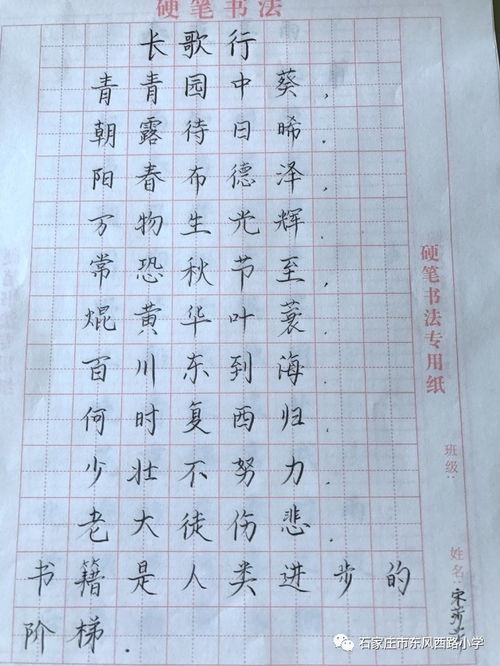 硬笔书法
长歌行
青青园中葵,
朝露待日晞.
阳春布德泽,
万物生光辉.
常恐秋节至,
焜黄华叶蓑.
百川东到海,
何时复西归.
少壮不努力,
老大徒伤悲.
书籍是人类进步的
阶梯.
硬笔书法专用纸
班级:
姓名:宋
石家庄市东风西路小学